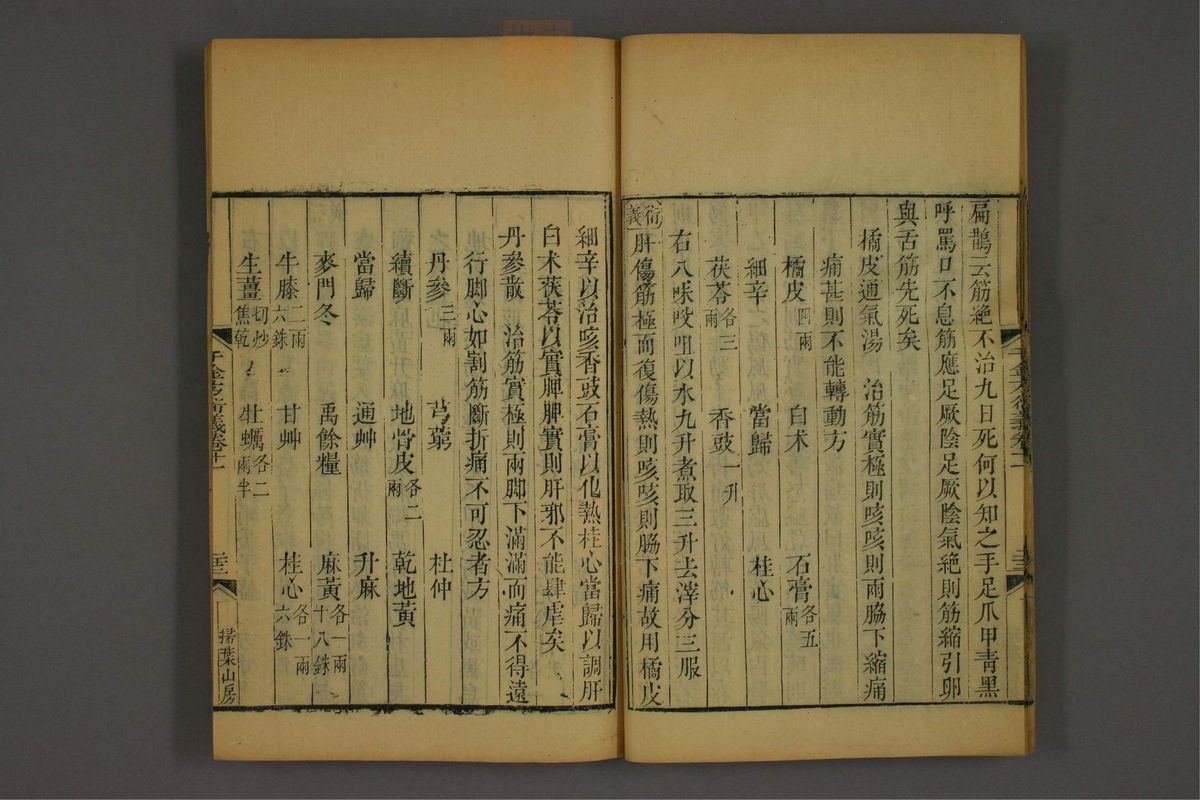 扁鵲云筋絕不治九日死何以知之手足爪甲青黑
呼罵口不息筋應足厥陰足厥陰氣絕則筋縮引卵
與舌筋先死矣
橘皮通氣湯 治筋實極則咳咳則兩脇下縮痛
痛甚則不能轉動方
橘皮四兩 白术 石膏各五兩
細辛 當歸 桂心
茯苓各三兩 香豉一升
右八味㕮咀以水九升煮取三升去滓分三服
衍義肝傷筋極而復傷熱則咳咳則脇下痛故用橘皮
細辛以治咳香豉石膏以化熱桂心當歸以調肝
白术茯苓以實脾脾實則肝邪不能肆虐矣
丹參散 治筋實極則兩脚下滿滿而痛不得遠
行脚心如割筋斷折痛不可忍者方
丹參三兩 芎藭 杜仲
續斷 地骨皮各二兩 乾地黃
當歸 通艸 升麻
麥門冬 禹餘糧 麻黃各一兩十八銖
牛膝二兩六銖 甘艸 桂心各一兩六銖
生薑切炒焦乾 牡蠣各二兩半
千金方衍義卷十一
掃葉山房